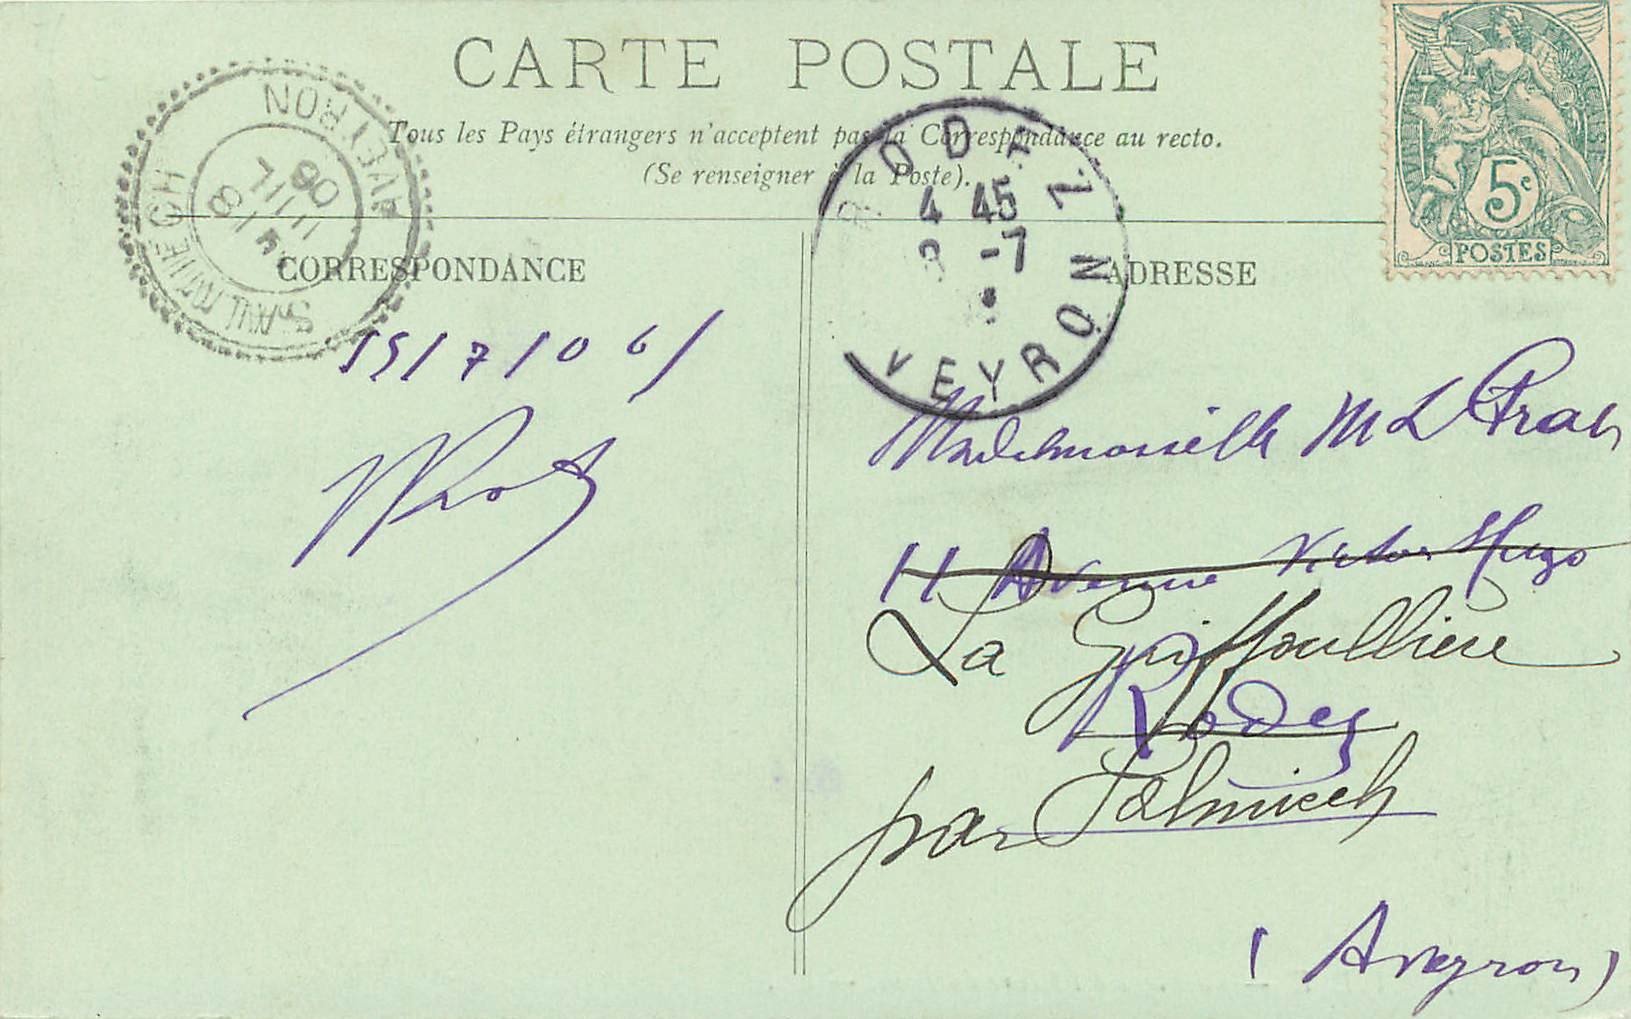 CARTE POSTALE
Tous les Pays étrangers n'acceptent pas la Correspondance au recto.
(Se renseigner à la Poste).
AVEYRON
RODEZ
4 45
8 -7
AVEYRON
5c
POSTES
CORRESPONDANCE
ADRESSE
15/7/06/
Mademoiselle M L Prat
11 Avenue Victor Hugo
La Griffoullière
Rodez
par Salmiech
(Aveyron)